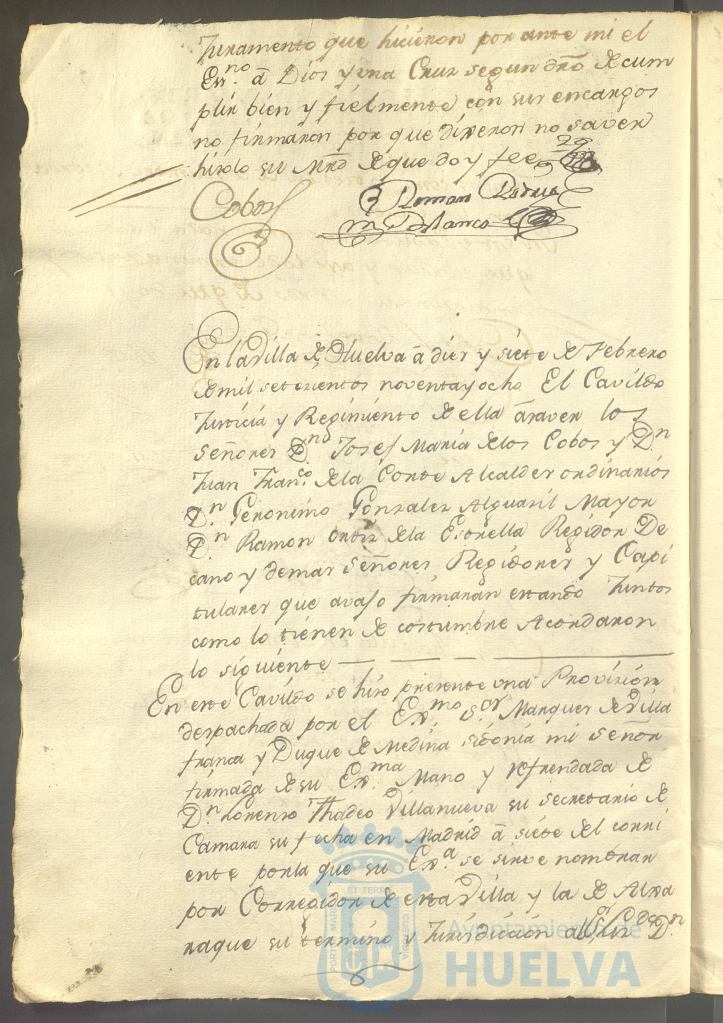 Juramento que hicieron por ante mi el
Es.no â Dios y una Cruz segun dro de cum
plir bien y fielmente con sus encargos
no firmaron por que dixeron no saver
hizolo su Mrd de que doy fee
Cobos
Roman
Blanco
En la Villa de Huelva â diez y siete de Febrero
de mil setezientos noventa y ocho El Cavildo
Justicia y Regimiento de ella âsaver los
Señores D.n Josef Maria de los Cobos y D.n
Juan Fran.co de la Corte Alcaldes ordinarios
D.n Geronimo Gonzalez Alguasil Mayor
D.n Ramon Ortiz de la Estrella Regidor De
cano y demas Señores Regidores y Capi
tulares que avajo firmaran estando Juntos
como lo tienen de costumbre Acordaron
lo siguiente
En este Cavildo se hizo presente una Provision
despachada por el Ex.mo S.or Marques de Villa
franca y Duque de Medina sidonia mi señor
firmada de su Ex.ma Mano y refrendada de
D.n Lorenzo Thadeo Villanueva su secretario de
Camara su fecha en Madrid â siete del corri
ente por la que su Ex.a se sirve nombrar
por Corregidor de esta Villa y la de Alxa
raque su termino y Jurisdiccion al D.n
Ayuntamiento de
HUELVA